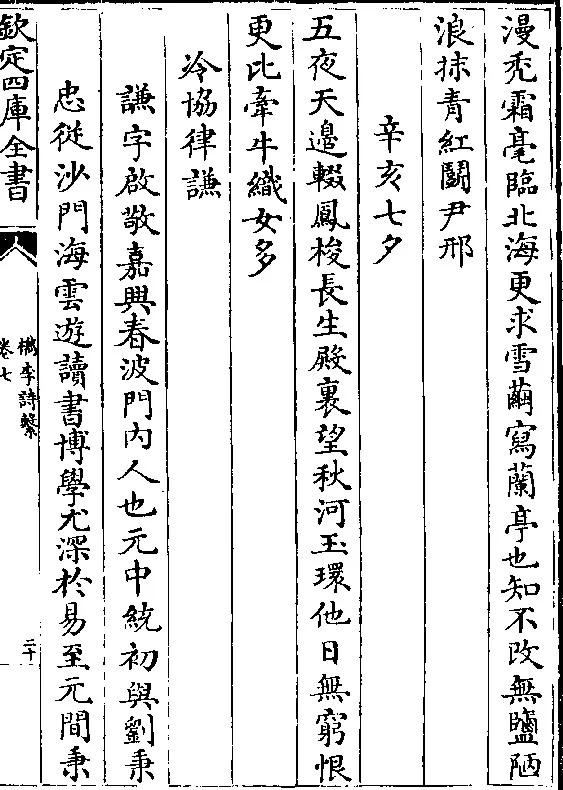 漫禿霜毫臨北海更求雪繭寫蘭亭也知不改無鹽陋
浪抹青紅鬪尹邢
辛亥七夕
五夜天邉輟鳳梭長生殿裏望秋河玉環他日無窮恨
更比牽牛織女多
冷協律謙
謙字啟敬嘉興春波門内人也元中統初與劉秉
忠從沙門海雲遊讀書博學尤深於易至元間秉
欽定四庫全書
檇李詩繫
卷七
二十